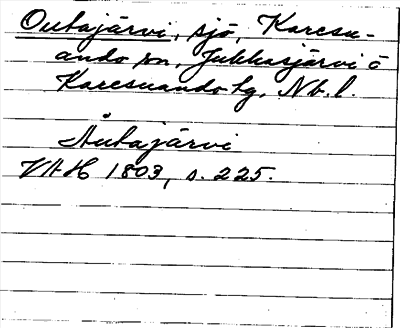 Outajärvi, sjö, Karesu-
ando sn, Jukkasjärvi o
Karesuando tg, Nb. l.
Åutajärvi
VAH 1803, s. 225.